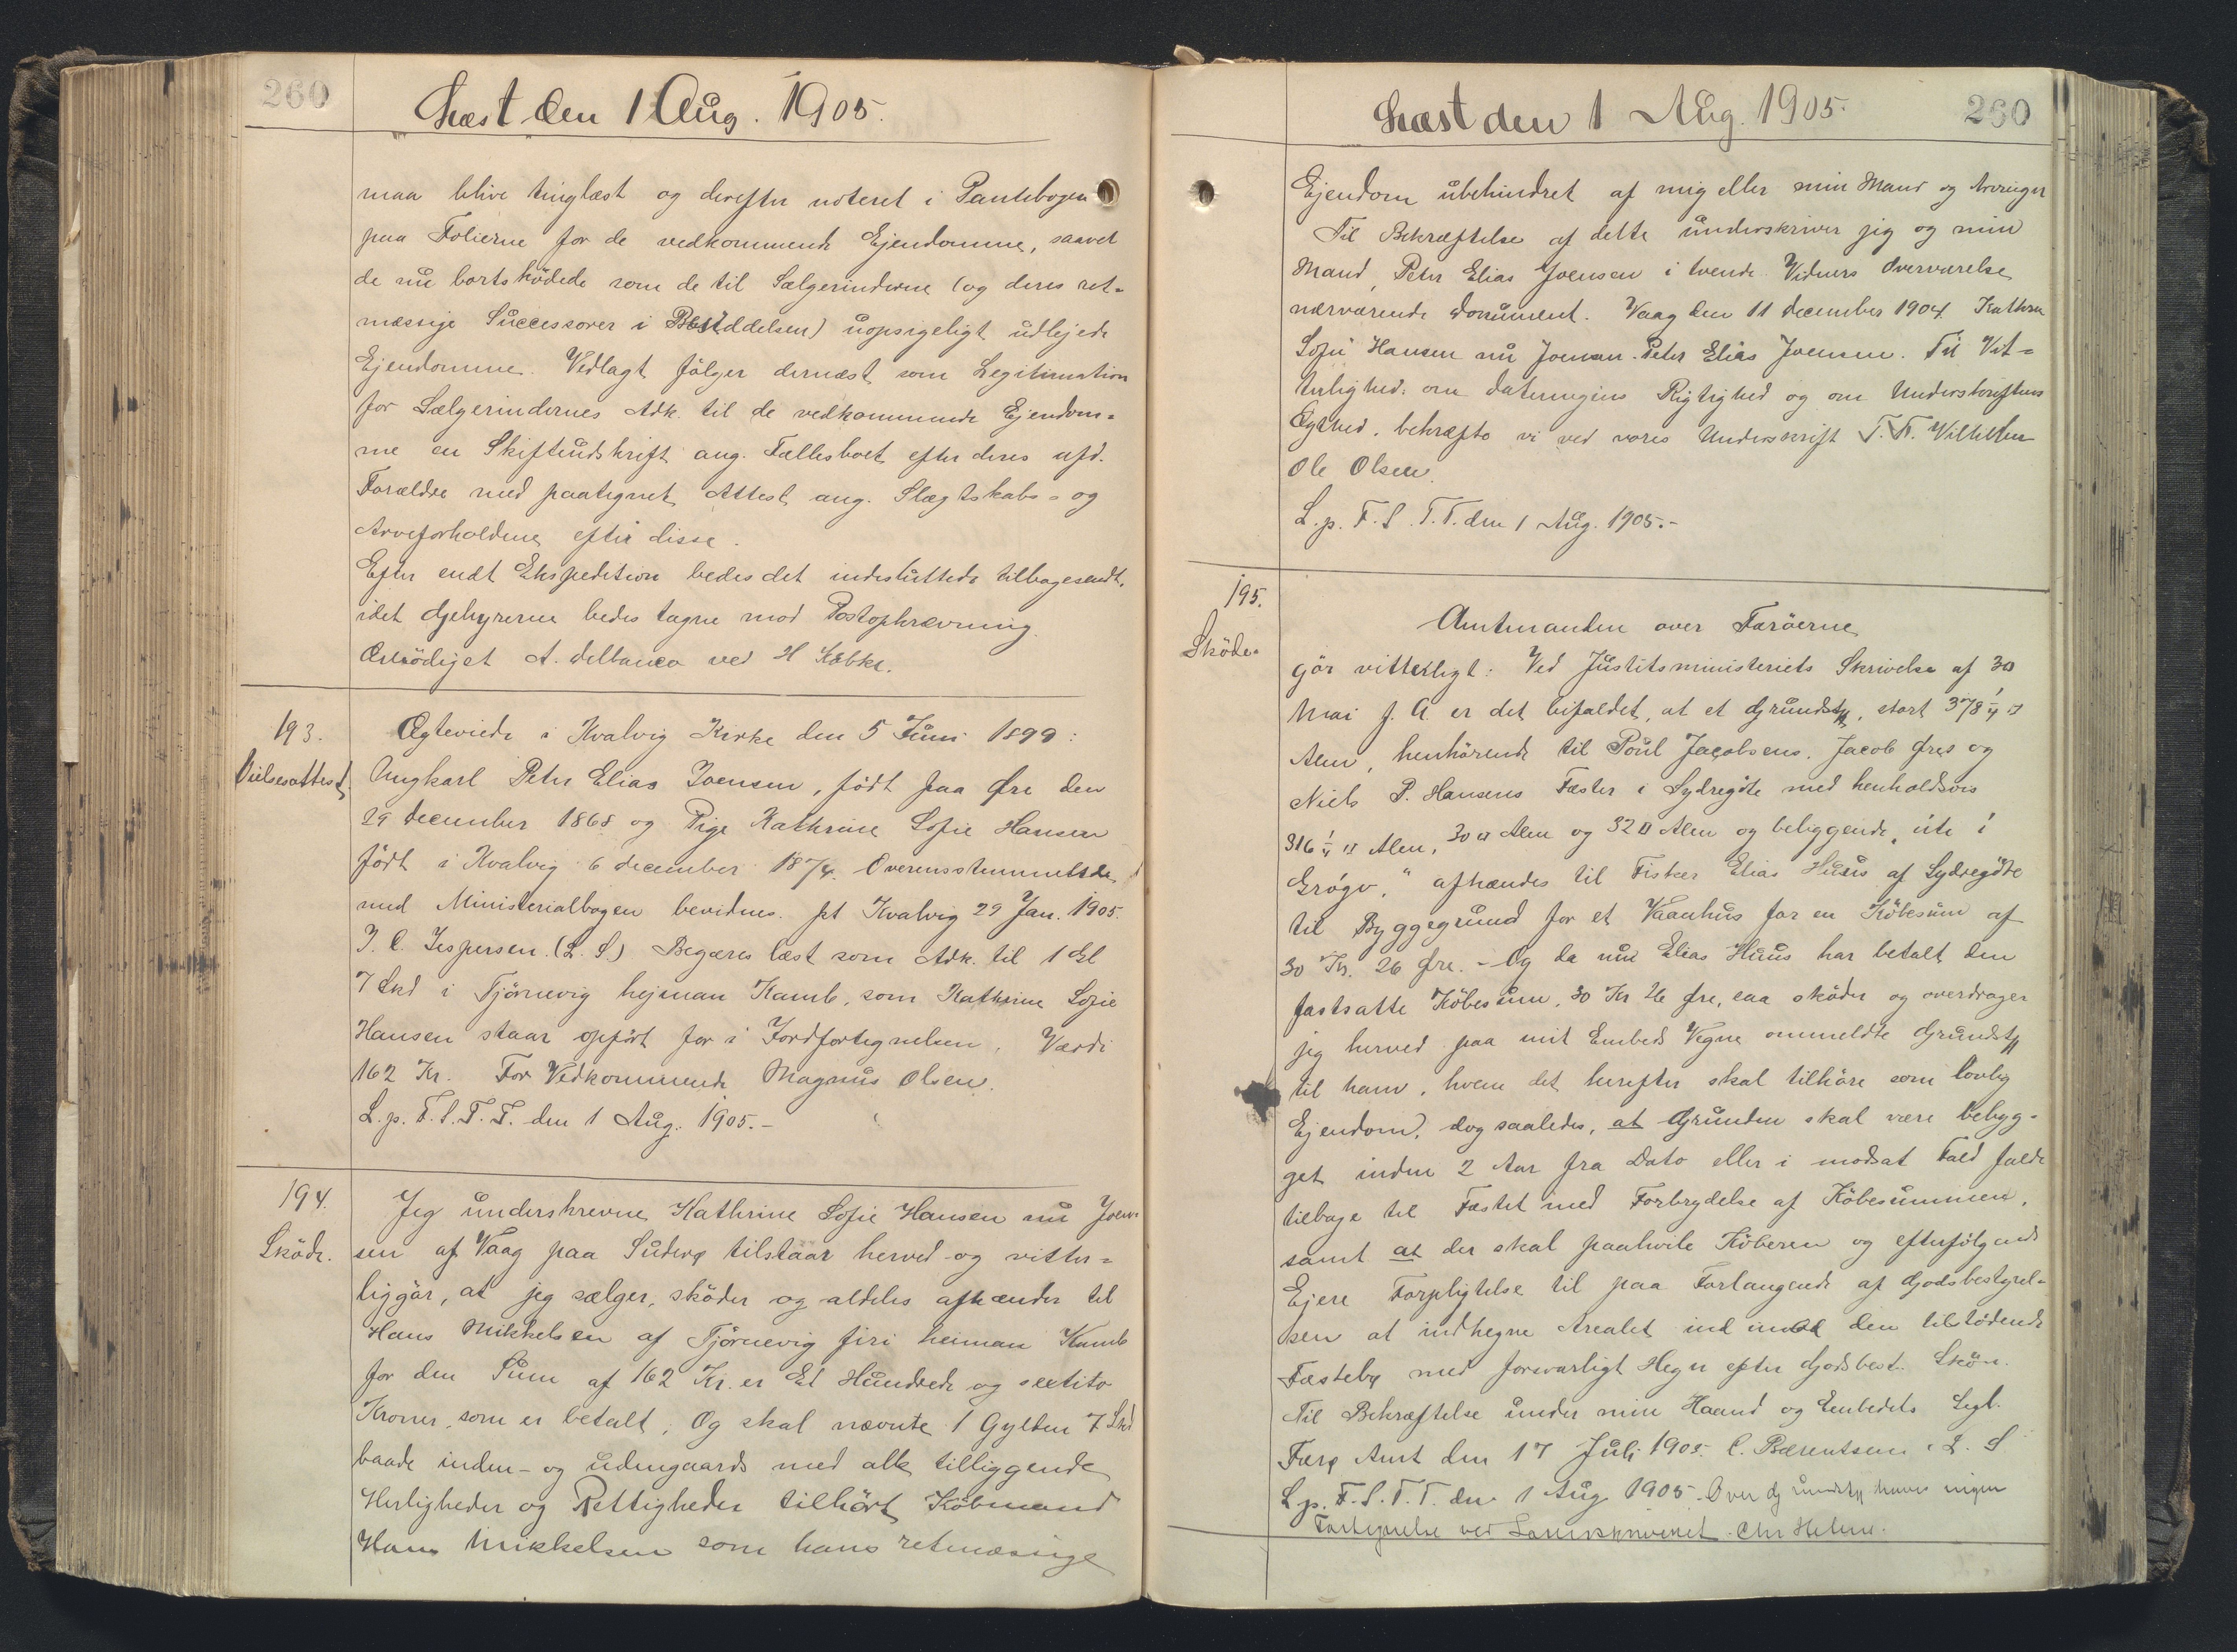 260
Læst den 1 Aug. 1905.
maa blive tinglæst og derefter noteret i Pantebogen
paa Folierne for de vedkommende Ejendomme, saavel
de nu bortsködede som de til Sælgerinderne (og deres ret=
mæssige Successorer i Besiddelsen) uopsigeligt udlejede
Ejendomme. Vedlagt fölger dernæst som Legitimation
for Sælgerindernes Adk. til de vedkommende Ejendom=
me en Skifteudskrift ang. Fællesboet efter deres afd.
Forældre med paategnet Attest ang. Slægtskabs= og
Arveforholdene efter disse.
Efter endt Ekspedition bedes det indesluttede tilbagesendt,
idet Gebyrerne bedes tagne mod Postopkrævning.
Ærbödigst A. Delbanco ved H
193.
Vielsesattest.
Ægteviede i Kvalvig Kirke den 5 Juni 1899:
Ungkarl Peter Elias Joensen, födt paa Øre den
29 December 1868 og Pige Kathrine Sofie Hansen
födt i Kvalvig 6 December 1874. Overensstemmelsde
med Ministerialbogen bevidnes. pt Kvalvig 29 Jan. 1905.
J. C. Jespersen. (L. S.) Begæres læst som Adk. til 1 Gl
7 Skd i Tjörnevig hejman Kamb, som Kathrine Sofie
Hansen staar opfört for i Jordfortegnelsen. Værdi
162 Kr. For Vedkommende Magnus Olsen.
L. p. F. S. T. T. den 1 Aug. 1905.-
194.
Sköde.
Jeg underskrevne Kathrine Sofie Hansen nu Joen=
sen af Vaag paa Suderø tilstaar herved og vitter=
liggör, at jeg sælger, sköder og aldeles afhænder til
Hans Mikkelsen af Tjörnevig firi heiman Kamb
for den Sum af 162 Kr. er Et Hundrede og sextito
Kroner, som er betalt. Og skal nævnte 1 Gylden 7 Skd
baade inden- og udengaards med alle tilliggende
Herligheder og Rettigheder tilhört Köbmand
Hans Mikkelsen som hans retmæssige
Læst den 1 Aug. 1905.
260
Ejendom ubehindret af mig eller min Mand og Arvinger
Til Bekræftelse af dette underskriver jeg og min
Mand, Peter Elias Joensen i tvende Vidners Overværelse
nærværende Dokument. Vaag den 11 December 1904. Kathrine
Sofie Hansen nu Joensen. Peter Elias Joensen. Til Vit=
terlighed: om Dateringens Rigtighed og om Underskriftens
Ægthed, bekræfte vi ved vores Underskrift T. T.
Ole Olsen.
L. p. F. S. T. T. den 1 Aug. 1905.-
195.
Sköde.
Amtmanden over Færöerne
gör vitterligt: Ved Justitsministeriets Skrivelse af 30
Mai f. A. er det bifaldet, at et Grundst., stort 378 1/4 □
Alen, henhörende til Poul Jacobsens, Jacob Øres og
Niels P. Hansens Fæster i Sydregöte med henholdsvis
316 1/4 □ Alen, 30 □ Alen og 32 □ Alen og beliggende „úti í
Grógv," afhændes til Fisker Elias Huus af Sydregöte
til Byggegrund for et Vaanhus for en Köbesum af
30 Kr. 26 Øre. - Og da nu Elias Huus har betalt den
fastsatte Köbesum, 30 Kr 26 Øre, saa sköder og overdrager
jeg herved paa mit Embeds Vegne ommeldte Grundst.
til ham, hvem det herefter skal tilhöre som lovlig
Ejendom, dog saaledes, at Grunden skal være bebyg=
get inden 2 Aar fra Dato eller i modsat Fald falde
tilbage til Fæstet med Forbrydelse af Köbesummen,
samt at der skal paahvile Köberen og efterfölgende
Ejere Forpligtelse til paa Forlangende af Godsbestyrel=
sen at indhegne Arealet ind imod den tilstödende
Fæsteby med forsvarligt Hegn efter Godsbest. Skön.
Til Bekræftelse under min Haand og Embedets Segl.
Færø Amt den 17 Juli 1905. C. Bærentsen. L. S.
L. p. F. S. T. T. den 1 Aug. 1905. Over Grundst. haves ingen
Fortegnelse ved Sorenskriveriet. Chr